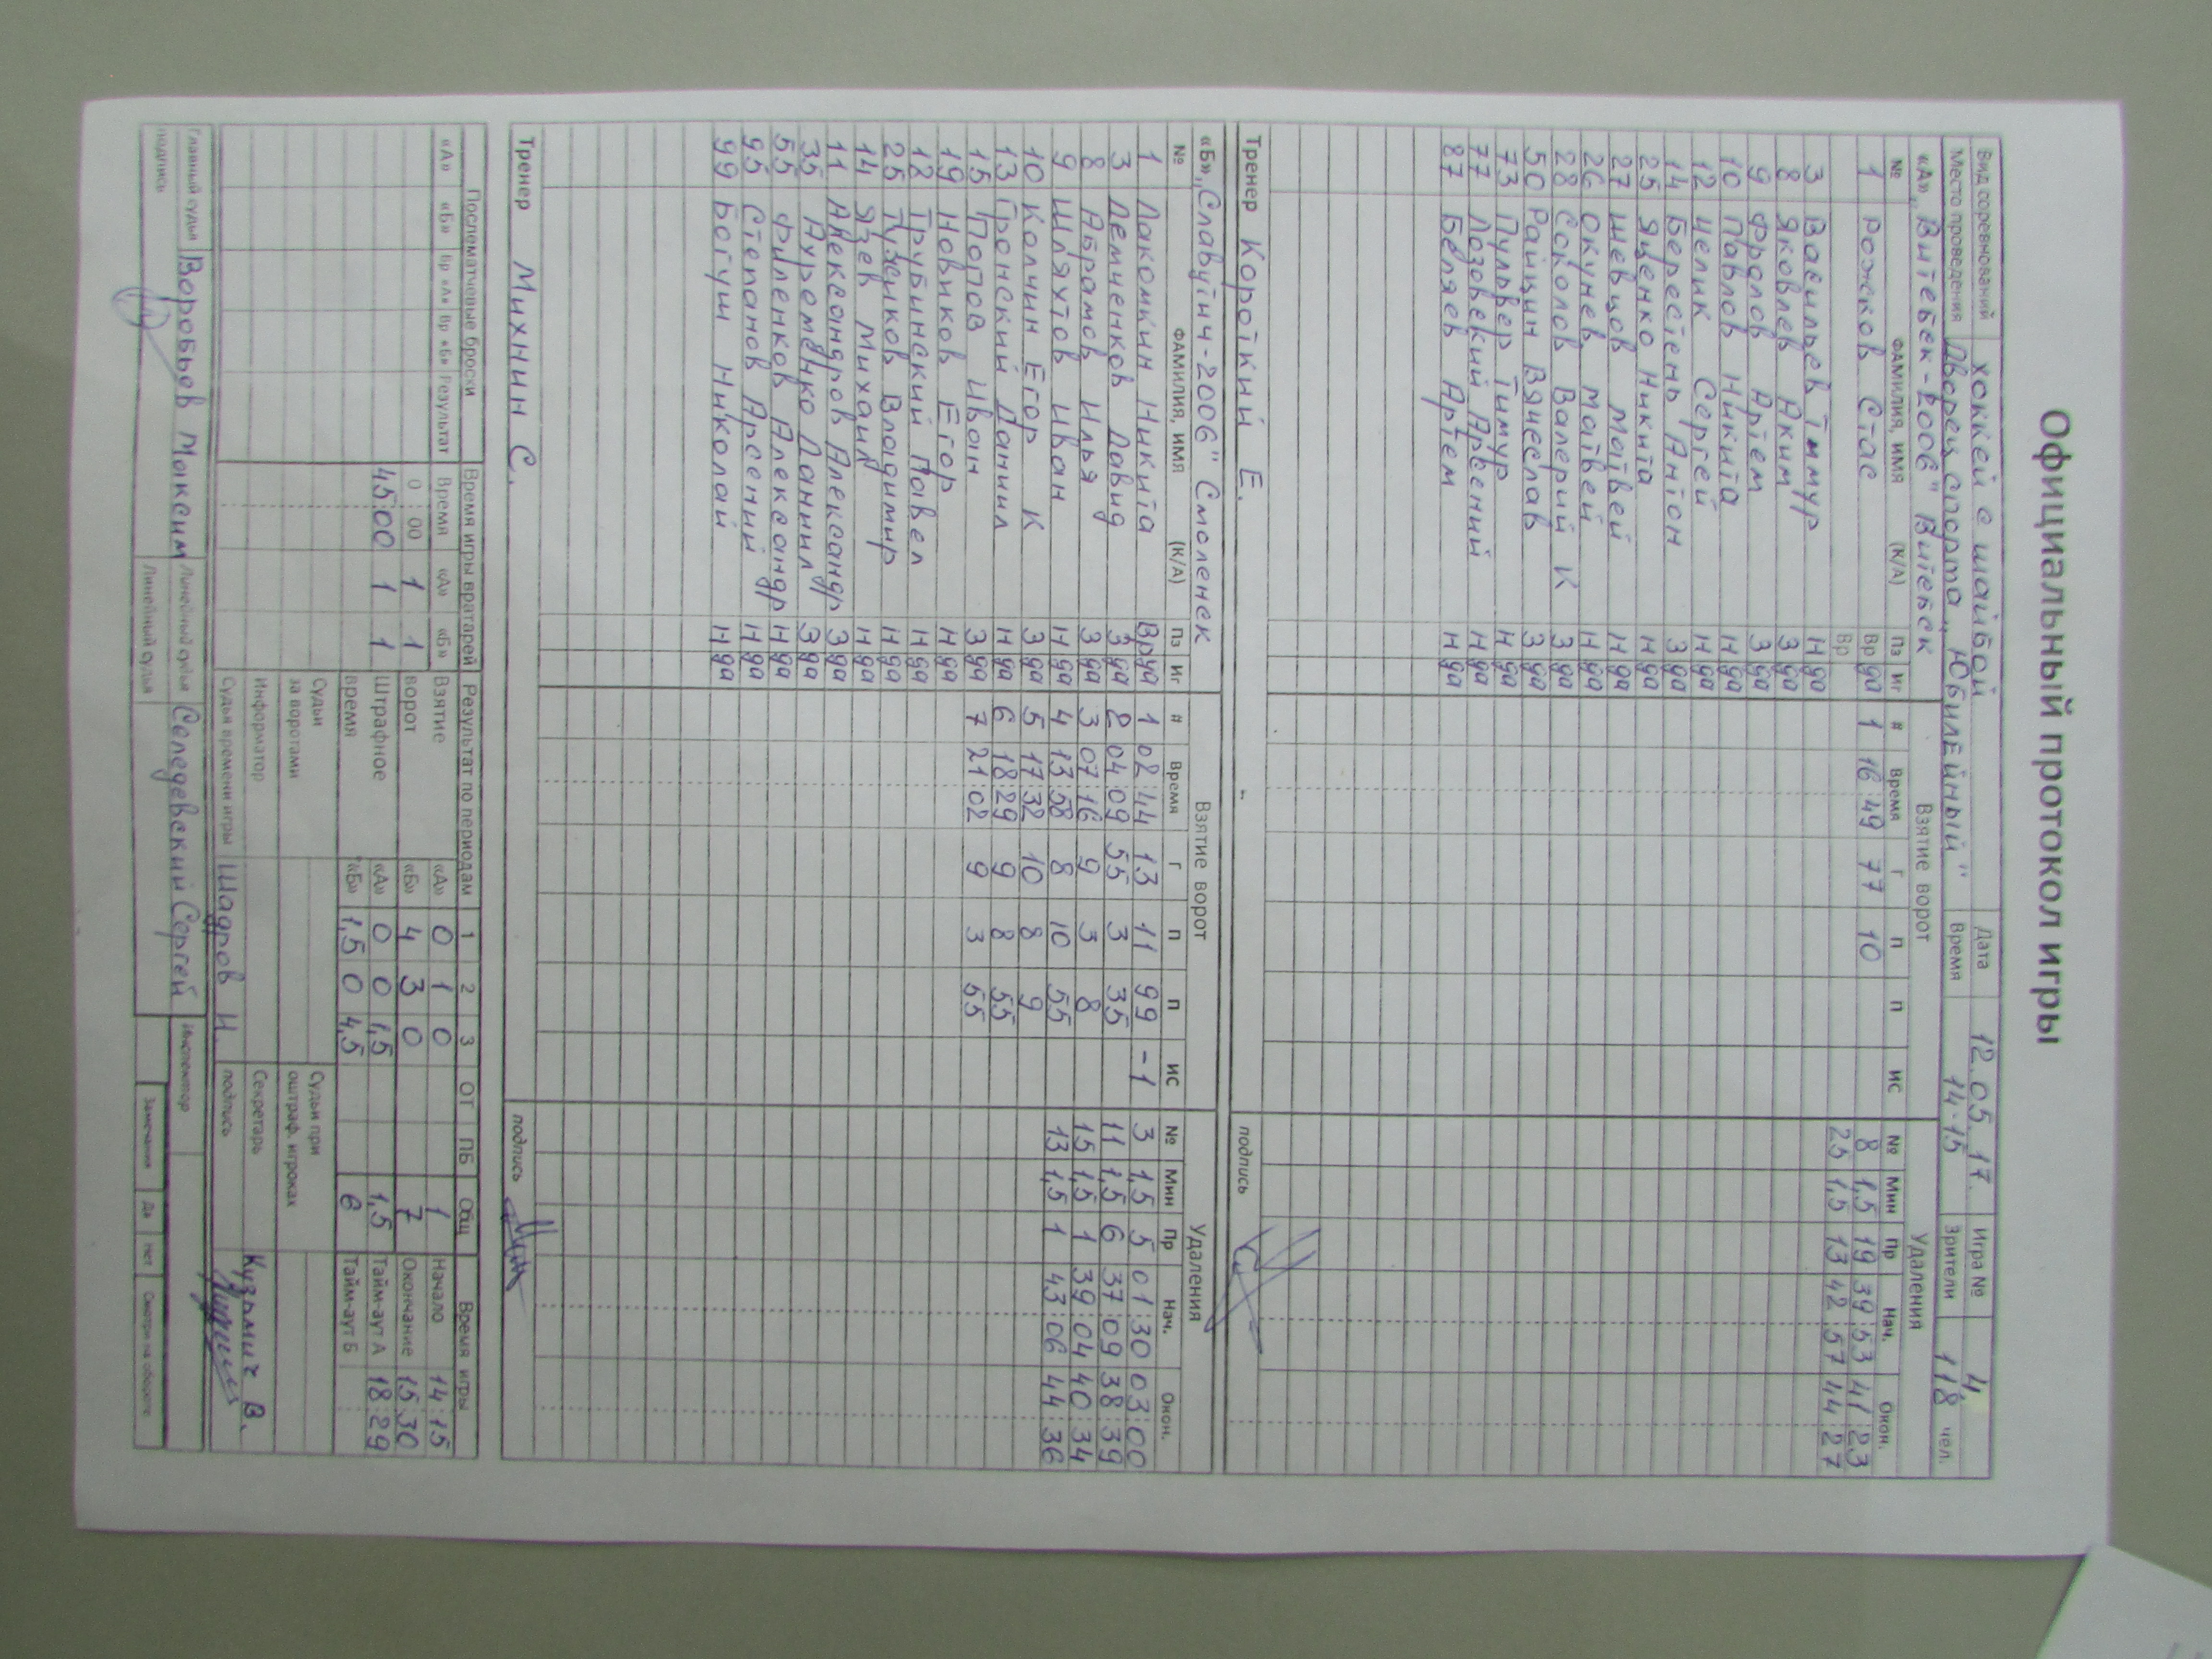 Официальный протокол игры
Вид соревнований хоккей с шайбой Дата 12.05.17. Игра № 4
Место проведения Дворец спорта "Юбилейный" Время 14-15 Зрители 118 чел.
«А» "Витебск-2006" Витебск Взятие ворот Удаления
№ ФАМИЛИЯ, ИМЯ (К/А) Пз Иг # Время Г П П ИС № Мин Пр Нач. Окон.
1 Рожков Стас Вр да 1 16:49 77 10 8 1,5 19 39:53 41:23
Вр 25 1,5 13 42:57 44:27
3 Васильев Тимур Н да
8 Яковлев Аким З да
9 Фролов Артем З да
10 Павлов Никита Н да
12 Целик Сергей Н да
14 Берестень Антон З да
25 Яценко Никита Н да
27 Шевцов Матвей Н да
26 Окунев Матвей Н да
28 Соколов Валерий К З да
50 Райцин Вячеслав З да
73 Пульвер Тимур Н да
77 Лозовский Арсений Н да
87 Беляев Артем Н да
Тренер Короткий Е. подпись
«Б» "Славутич-2006" Смоленск Взятие ворот Удаления
№ ФАМИЛИЯ, ИМЯ (К/А) Пз Иг # Время Г П П ИС № Мин Пр Нач. Окон.
1 Лакомкин Никита Вр да 1 02:44 13 11 99 -1 3 1,5 5 01:30 03:00
3 Демченков Давид З да 2 04:09 55 3 35 11 1,5 6 37:09 38:39
8 Абрамов Илья З да 3 07:16 9 3 8 15 1,5 1 39:04 40:34
9 Шляхтов Иван Н да 4 13:58 8 10 55 13 1,5 1 43:06 44:36
10 Колчин Егор К З да 5 17:32 10 8 9
13 Гронский Даниил Н да 6 18:29 9 8 55
15 Попов Иван З да 7 21:02 9 3 55
19 Новиков Егор Н да
12 Трубинский Павел Н да
25 Пузиков Владимир Н да
14 Язев Михаил Н да
11 Александров Александр З да
35 Ауременко Даниил З да
55 Филенков Александр Н да
95 Степанов Арсений Н да
99 Богуш Николай Н да
Тренер Михнин С. подпись
Послематчевые броски Время игры вратарей Результат по периодам Время игры
«А» «Б» Вр «А» Вр «Б» Результат Время «А» «Б» 1 2 3 ОТ ПБ Общ
0:00 1 1 Взятие ворот «А» 0 1 0 1 Начало 14:15
45:00 1 1 «Б» 4 3 0 7 Окончание 15:30
Штрафное время «А» 0 0 1,5 1,5 Тайм-аут А 18:29
«Б» 1,5 0 4,5 6 Тайм-аут Б
Судьи за воротами Судьи при оштраф. игроках
Информатор Секретарь Кузьмич В.
Судья времени игры Шадров Н. подпись
Главный судья Воробьев Максим Линейный судья Селедевский Сергей Инспектор
подпись Линейный судья Замечания Да Нет Смотри на обороте